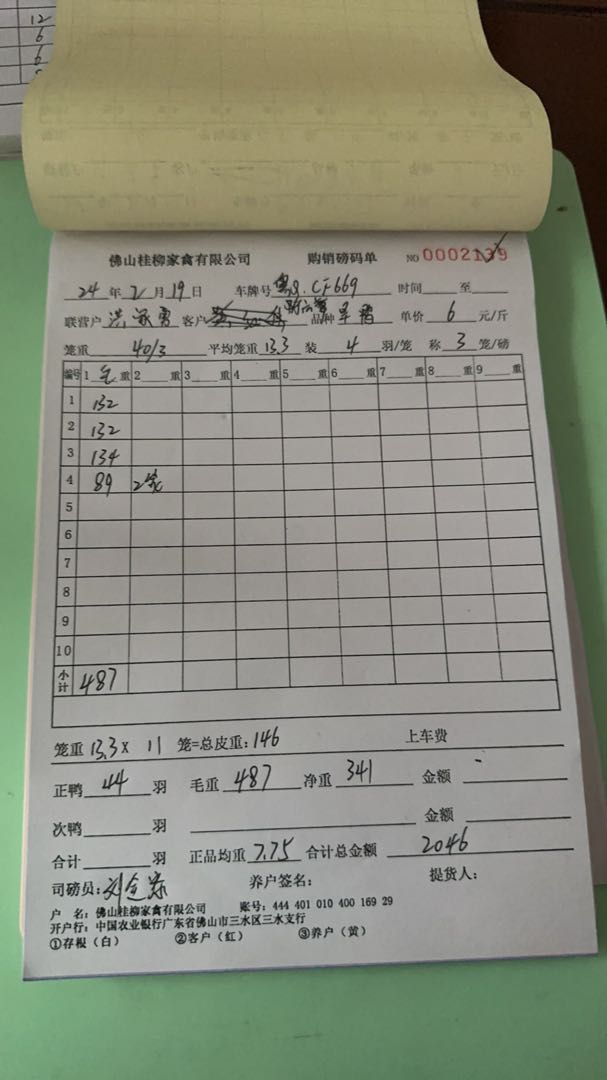 12
6
6
佛山桂柳家禽有限公司 购销磅码单 NO 0002139
24 年 2 月 19 日 车牌号 粤Q.CF669 时间 至
联营户 客户 品种 单价 6 元/斤
笼重 40/3 平均笼重 13.3 装 4 羽/笼 称 3 笼/磅
编号 1 毛 重 2 重 3 重 4 重 5 重 6 重 7 重 8 重 9 重
1 132
2 132
3 134
4 89 2笼
5
6
7
8
9
10
小计 487
笼重 13.3 x 11 笼=总皮重: 146 上车费
正鸭 44 羽 毛重 487 净重 341 金额 -
次鸭 羽 金额
合计 羽 正品均重 7.75 合计总金额 2046
司磅员: 养户签名: 提货人:
户 名: 佛山桂柳家禽有限公司 账号: 444 401 010 400 169 29
开户行: 中国农业银行广东省佛山市三水区三水支行
①存根（白） ②客户（红） ③养户（黄）